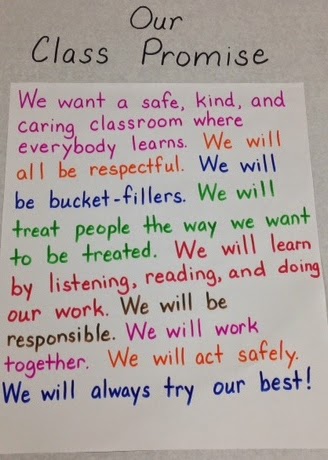 Our
Class Promise
We want a safe, kind, and
caring classroom where
everybody learns. We will
all be respectful. We will
be bucket-fillers. We will
treat people the way we want
to be treated. We will learn
by listening, reading, and doing
our work. We will be
responsible. We will work
together. We will act safely.
We will always try our best!